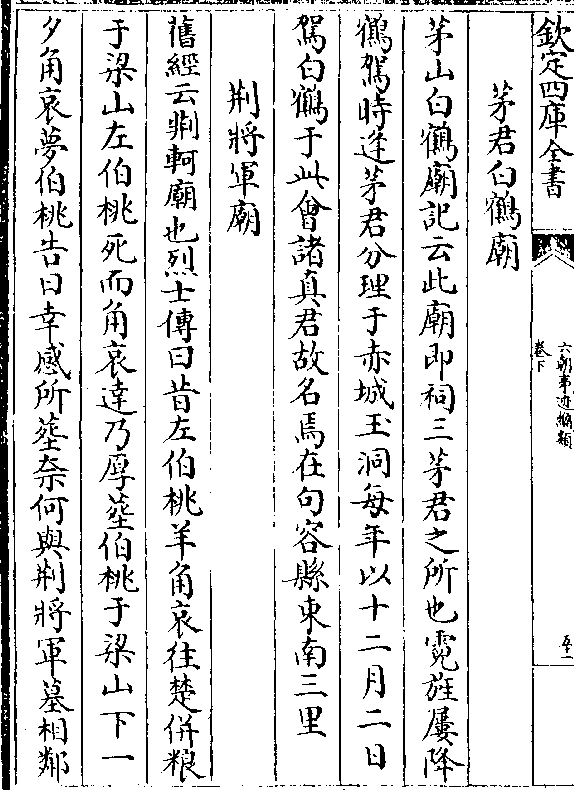 欽定四庫全書
六朝事迹編類
卷下
五十一
茅君白鶴廟
茅山白鶴廟記云此廟即祠三茅君之所也霓旌屢降
鶴駕時逢茅君分理于赤城玉洞每年以十二月二日
駕白鶴于此會諸真君故名焉在句容縣東南三里
荆將軍廟
舊經云荆軻廟也烈士傳曰昔左伯桃羊角哀往楚併粮
于梁山左伯桃死而角哀達乃厚塟伯桃于梁山下一
夕角哀夢伯桃告曰幸感所塟奈何與荆將軍墓相鄰